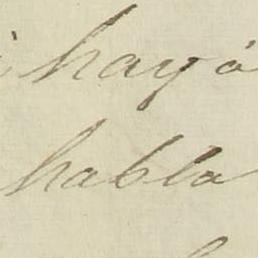 haya
habla